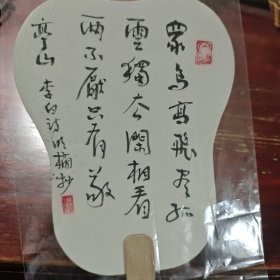 眾鳥高飛盡孤
雲獨去閑相看
兩不厭只有敬
亭山 李白詩